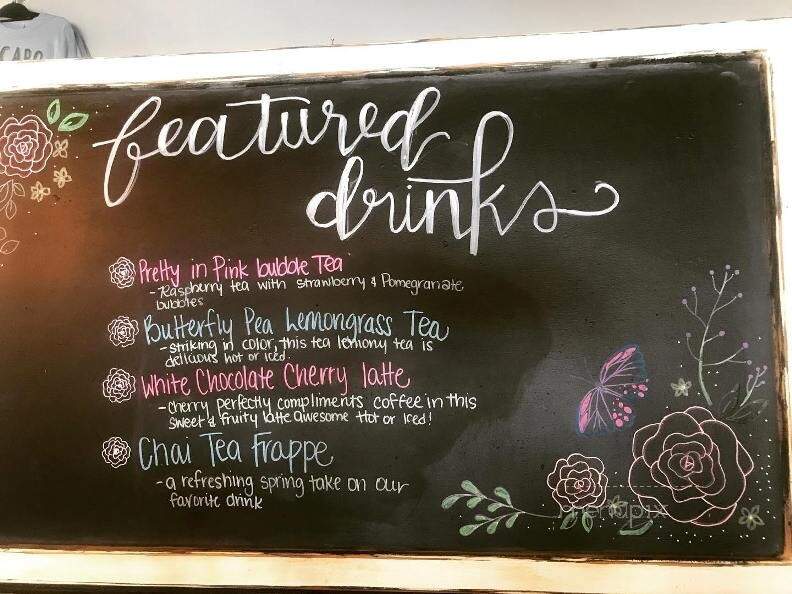 CABO
featured
drinks
Pretty in Pink bubble Tea
- Raspberry tea with strawberry & Pomegranate
bubbles
Butterfly Pea Lemongrass Tea
- striking in color, this tea lemony tea is
delicious hot or iced.
White Chocolate Cherry latte
- Cherry perfectly compliments coffee in this
sweet & fruity latte awesome Hot or Iced!
Chai Tea Frappe
- a refreshing spring take on our
favorite drink
menupix